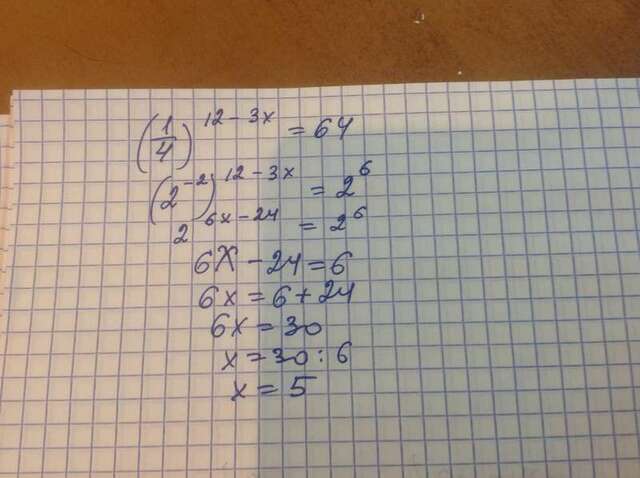 (1/4)^(12-3x) = 64
(2^(-2))^(12-3x) = 2^6
2^(6x-24) = 2^6
6x - 24 = 6
6x = 6 + 24
6x = 30
x = 30 : 6
x = 5